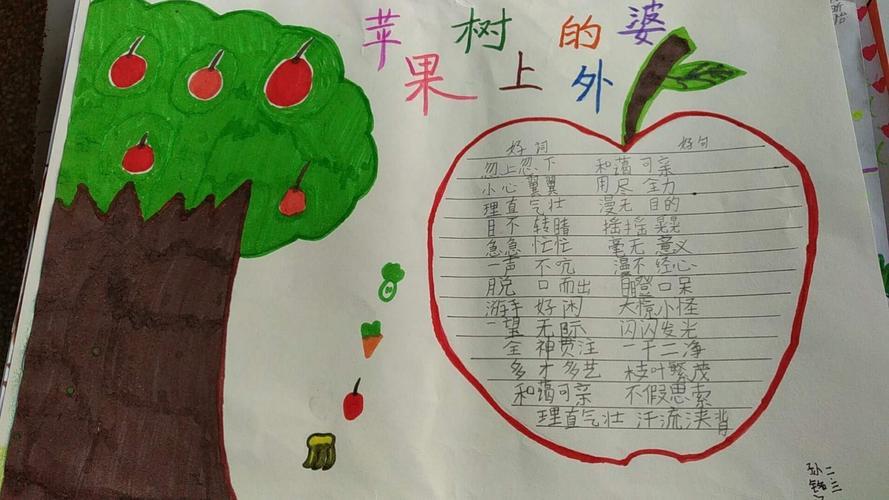 苹果树上的外婆
好词 好句
忽上忽下 和蔼可亲
小心翼翼 用尽全力
理直气壮 漫无目的
目不转睛 摇摇晃晃
急急忙忙 毫无意义
一声不吭 漫不经心
脱口而出 目瞪口呆
游手好闲 大惊小怪
一望无际 闪闪发光
全神贯注 一干二净
多才多艺 枝叶繁茂
和蔼可亲 不假思索
理直气壮 汗流浃背
二.三
孙